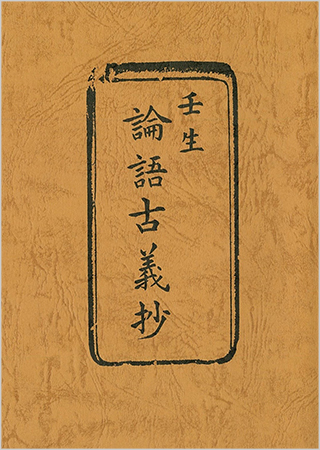 壬生
論語古義抄